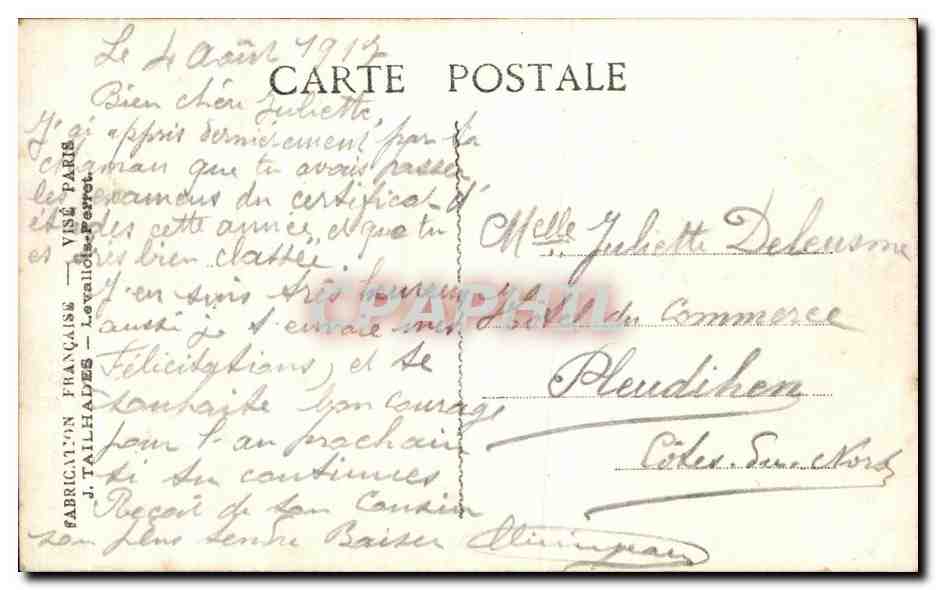 Le 4 Août 1917
CARTE POSTALE
Bien chère Juliette,
J'ai appris dernièrement par la
maman que tu avais passer
les examens du certificat d'
études cette année, et que tu
es très bien classée
J'en suis très heureux
aussi je t'envoie mes
Félicitations, et te
souhaite bon courage
pour l'an prochain
si tu continues
Reçoit de ton Cousin
son plus tendre Baiser
Melle Juliette
Hôtel du Commerce
Pleudihen
Côtes-du-Nord
FABRICATION FRANÇAISE — VISÉ PARIS
J. TAILHADES — Levallois-Perret.
CPAPHIL